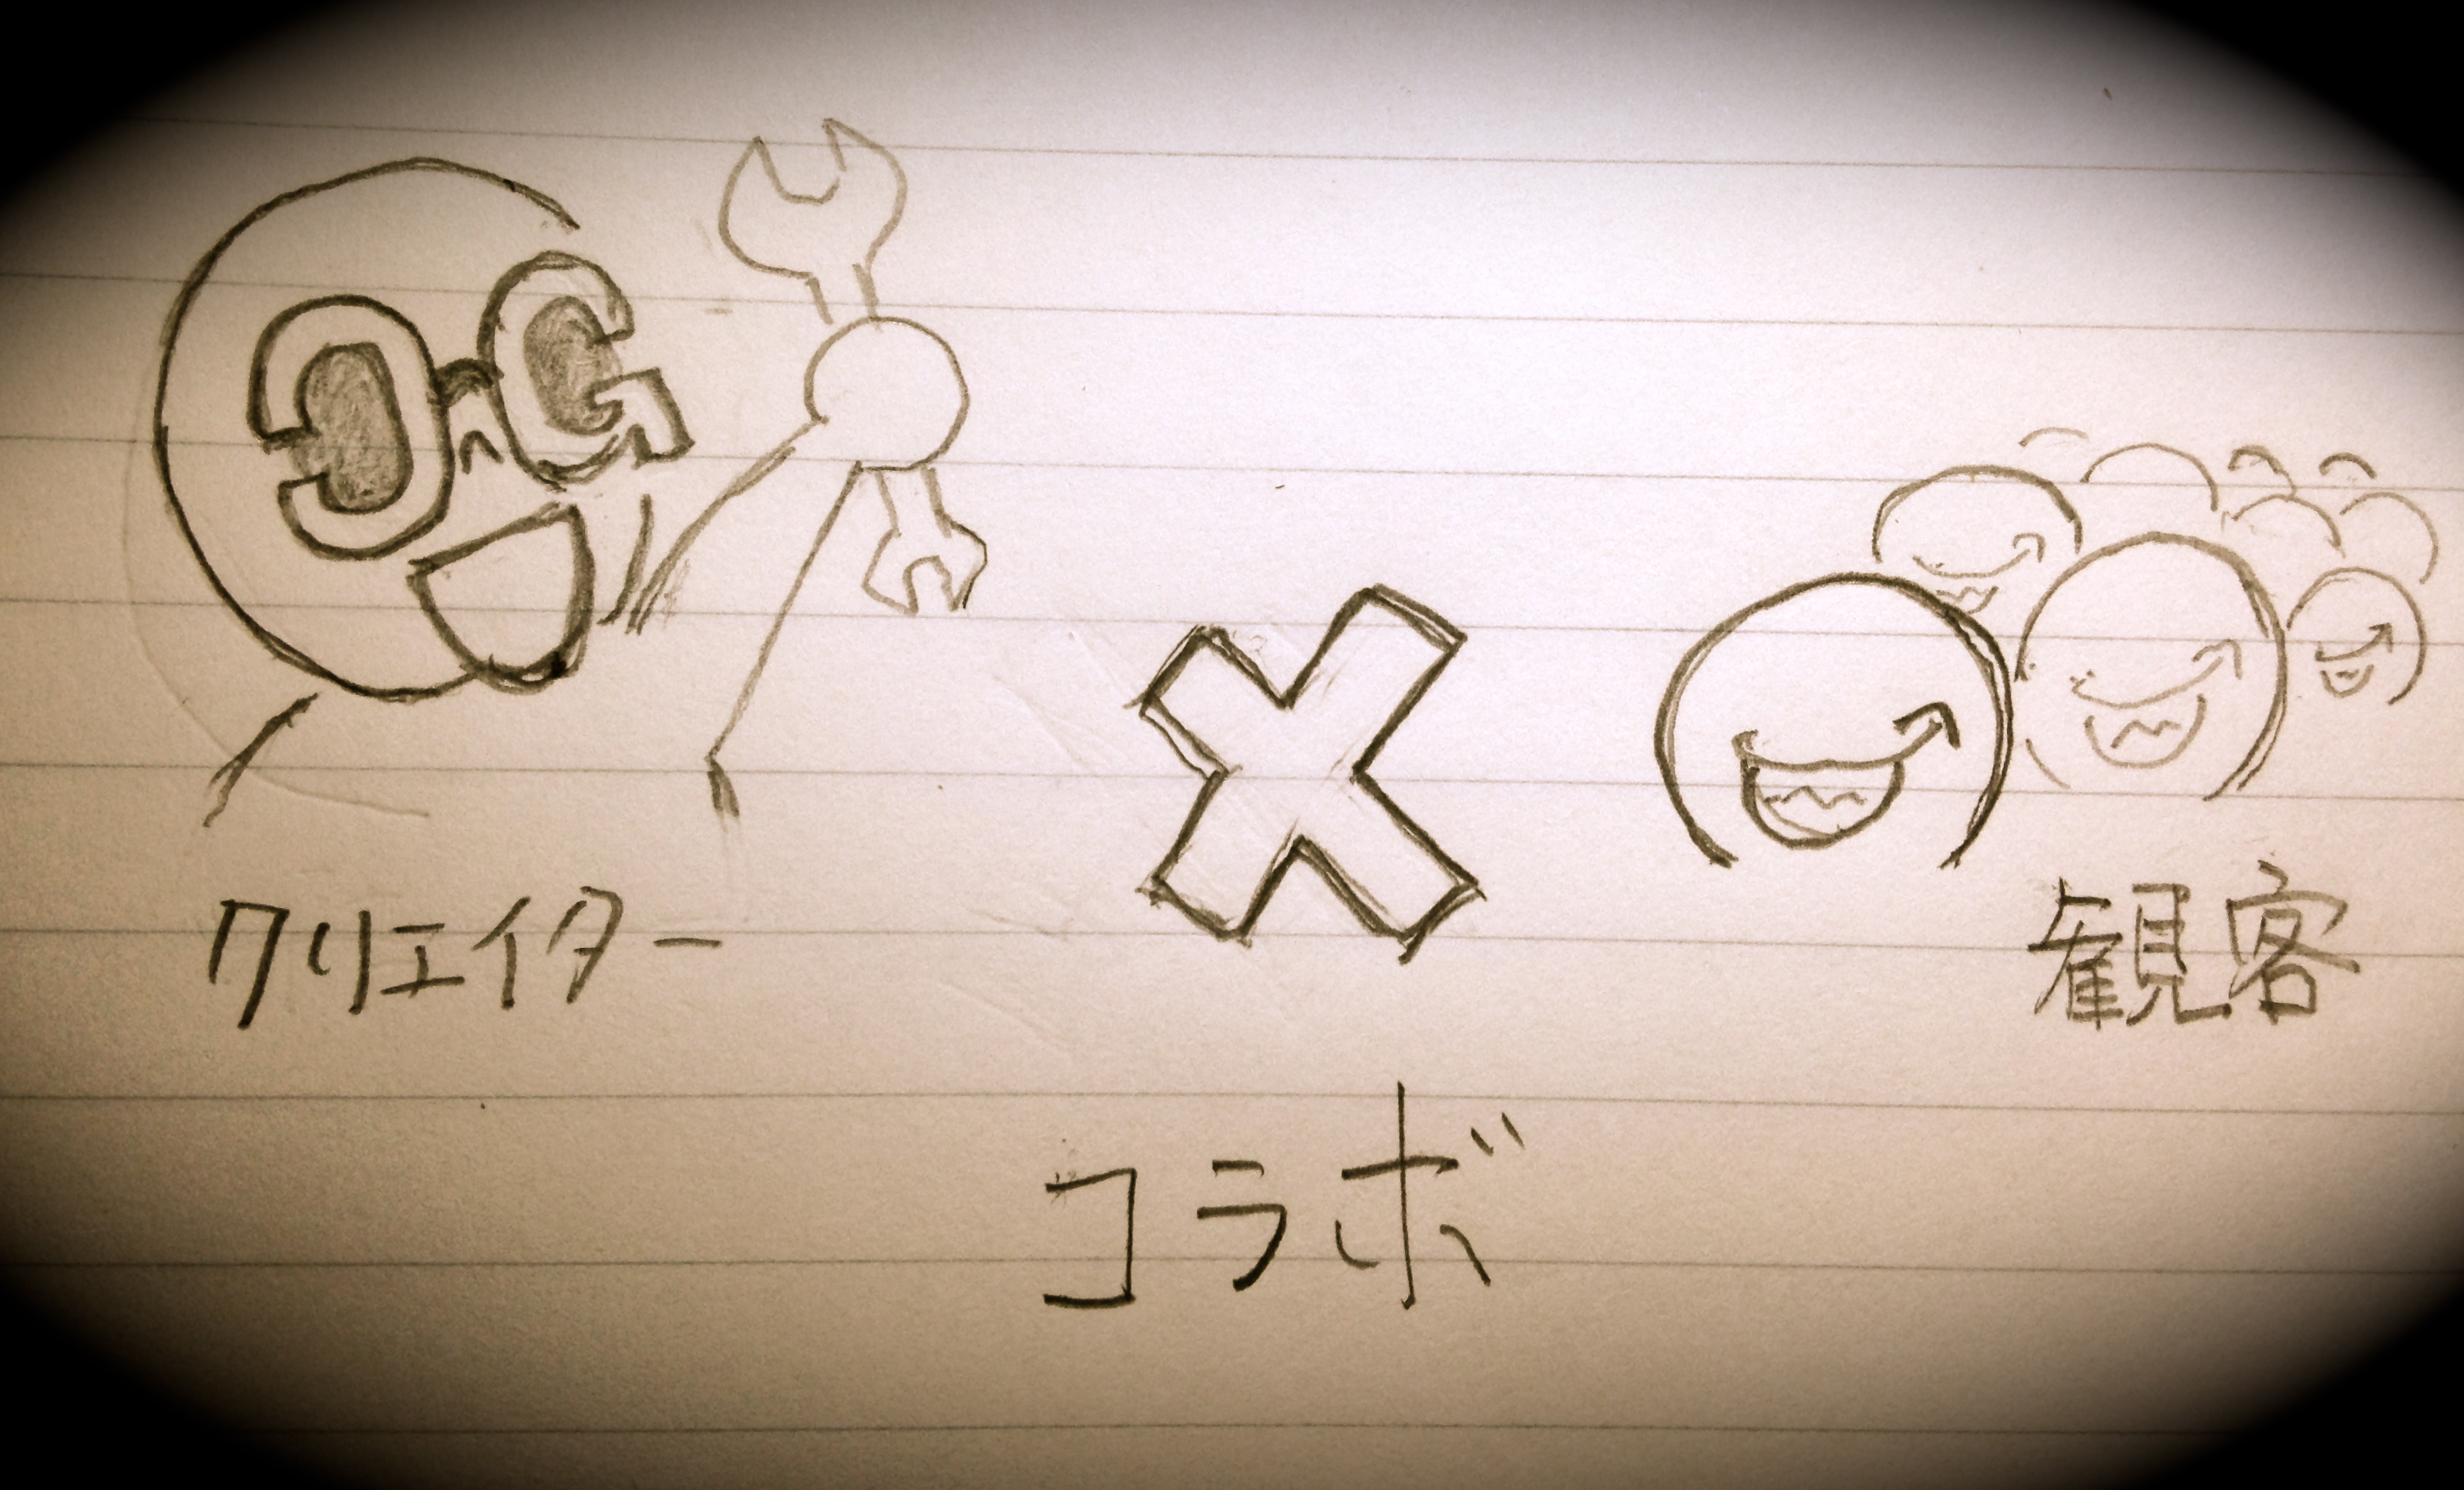 CG
×
クリエイター
観客
コラボ